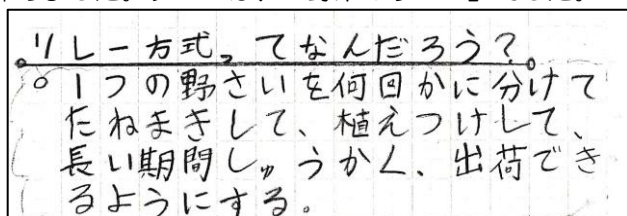 リレー方式ってなんだろう？
○1つの野さいを何回かに分けて
たねまきして、植えつけして、
長い期間しゅうかく、出荷でき
るようにする。